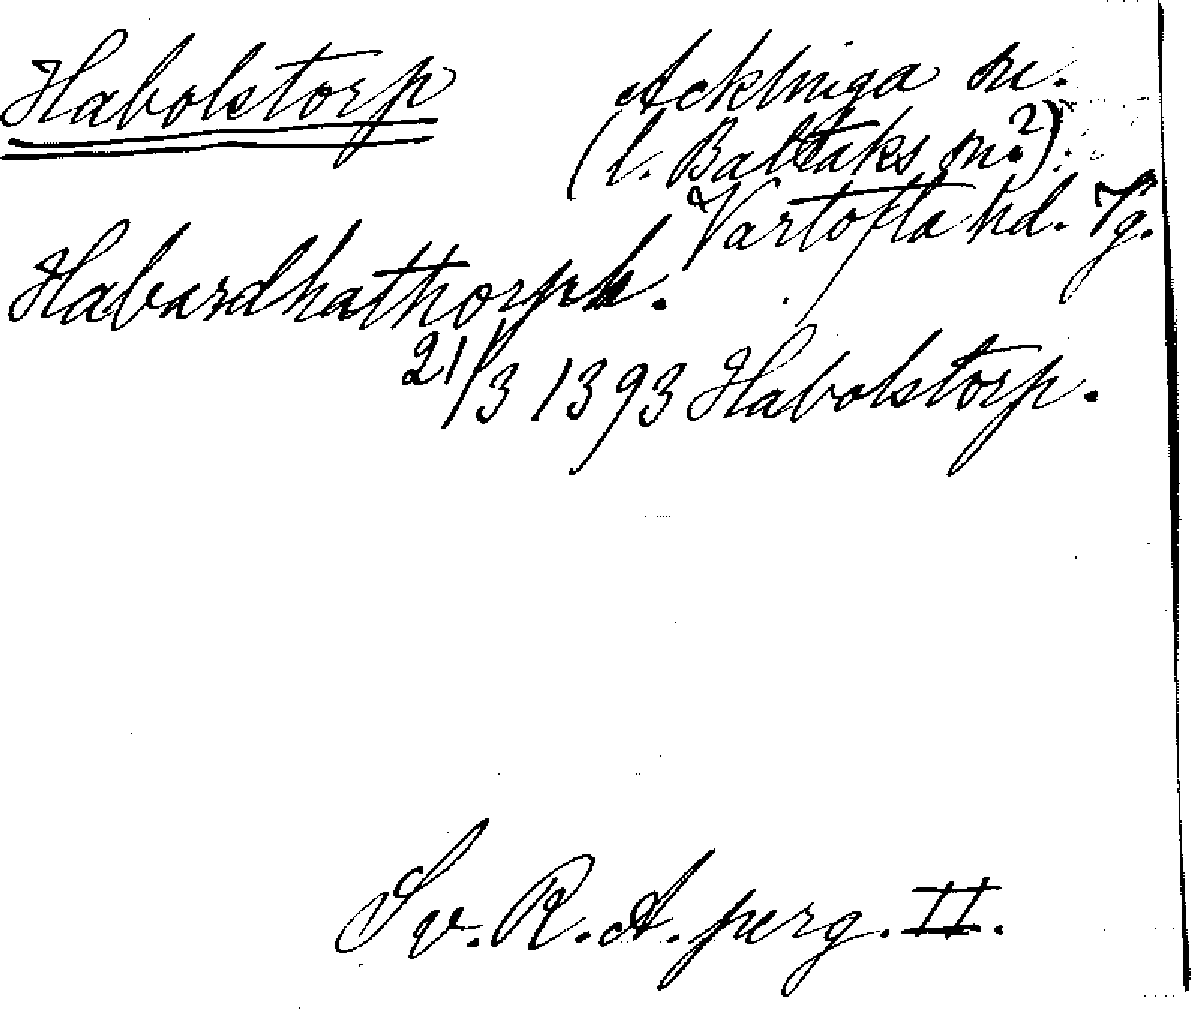 Habolstorp
Acklinga sn.
(l. Baltaks sn.?)
Vartofta hd. Vg.
Habardhathorph.
21/3 1393 Habolstorp.
Sv. R. A. perg. II.